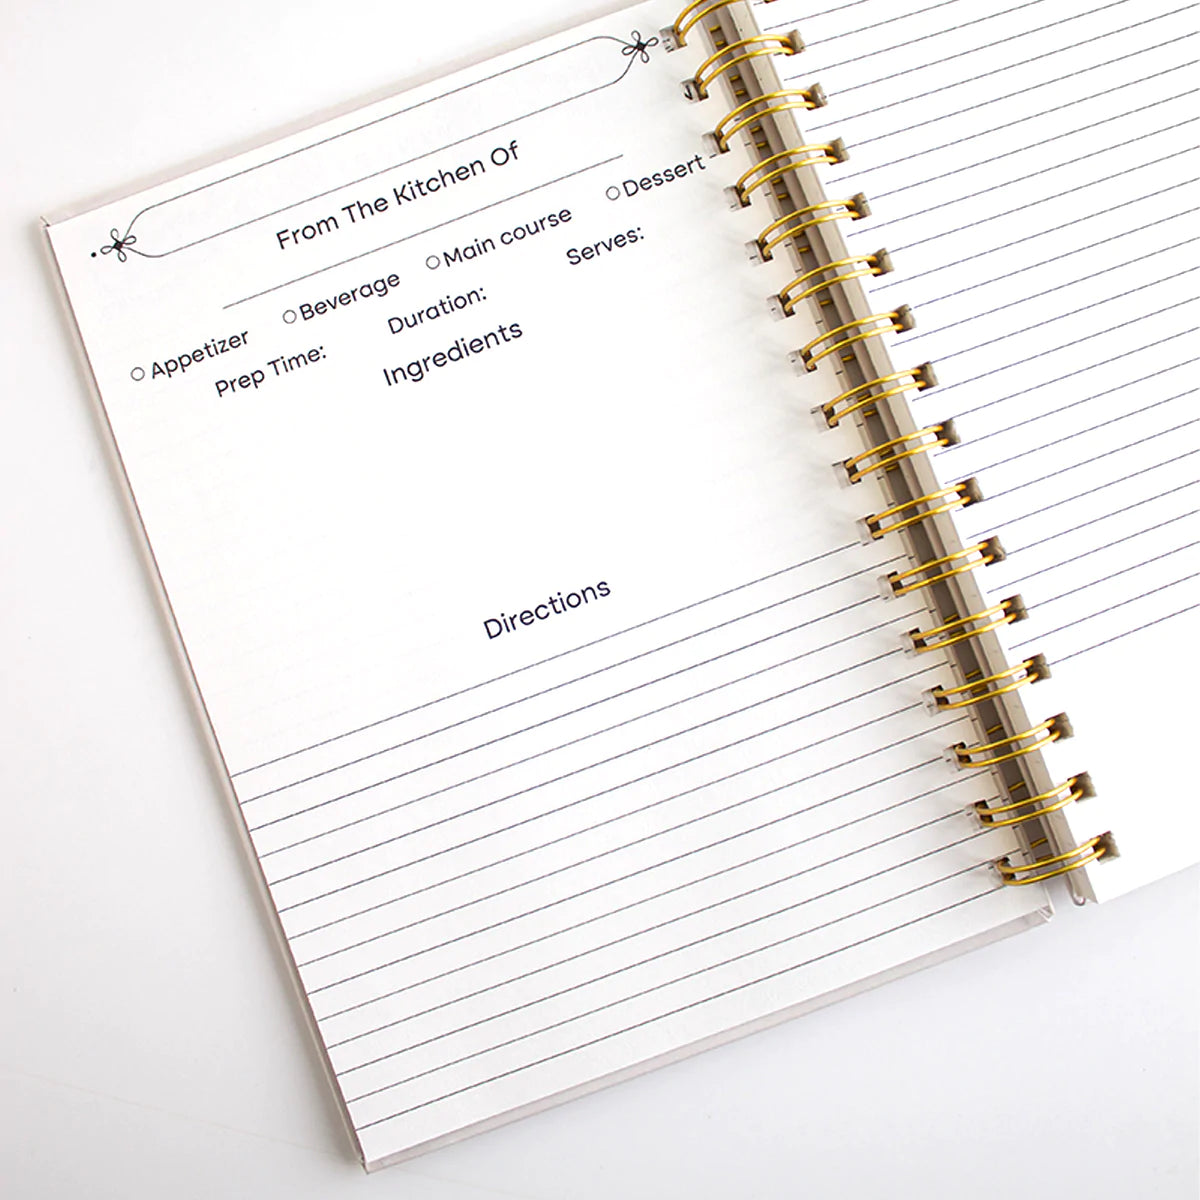 From The Kitchen Of
Appetizer Beverage Main course Dessert
Prep Time: Duration: Serves:
Ingredients
Directions